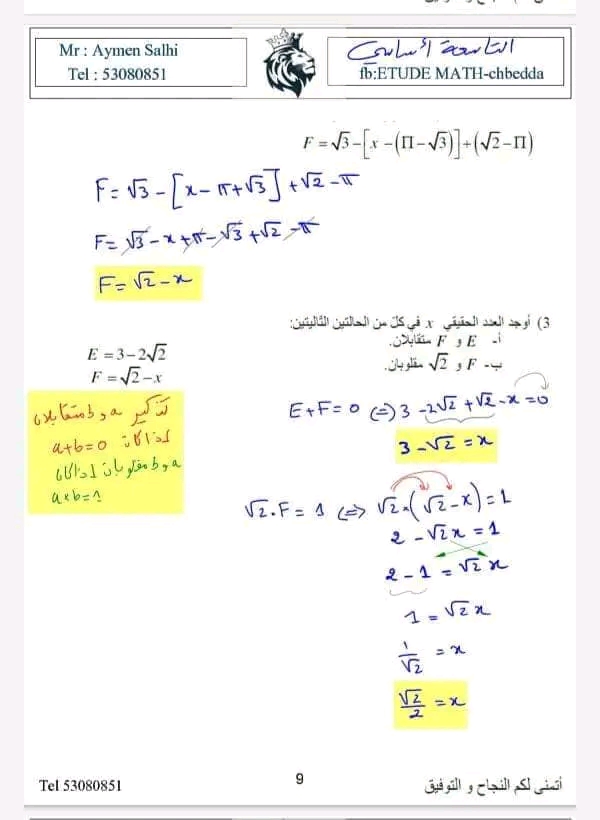 Mr : Aymen Salhi
Tel : 53080851
التاسعة أساسي
fb:ETUDE MATH-chbedda
F = √3 − [x − (Π − √3)] + (√2 − Π)
F = √3 − [x − π + √3] + √2 − π
F = √3 − x + π − √3 + √2 − π
F = √2 − x
3) أوجد العدد الحقيقي x في كل من الحالتين التاليتين:
أ- E و F متقابلان.
ب- F و √2 مقلوبان.
E = 3 − 2√2
F = √2 − x
تذكير a و b متقابلان
إذا كانت a + b = 0
a و b مقلوبان إذا كان
a × b = 1
E + F = 0 ⇔ 3 − 2√2 + √2 − x = 0
3 − √2 = x
√2 . F = 1 ⇔ √2 × (√2 − x) = 1
2 − √2 x = 1
2 − 1 = √2 x
1 = √2 x
1/√2 = x
√2/2 = x
Tel 53080851
9
أتمنى لكم النجاح و التوفيق